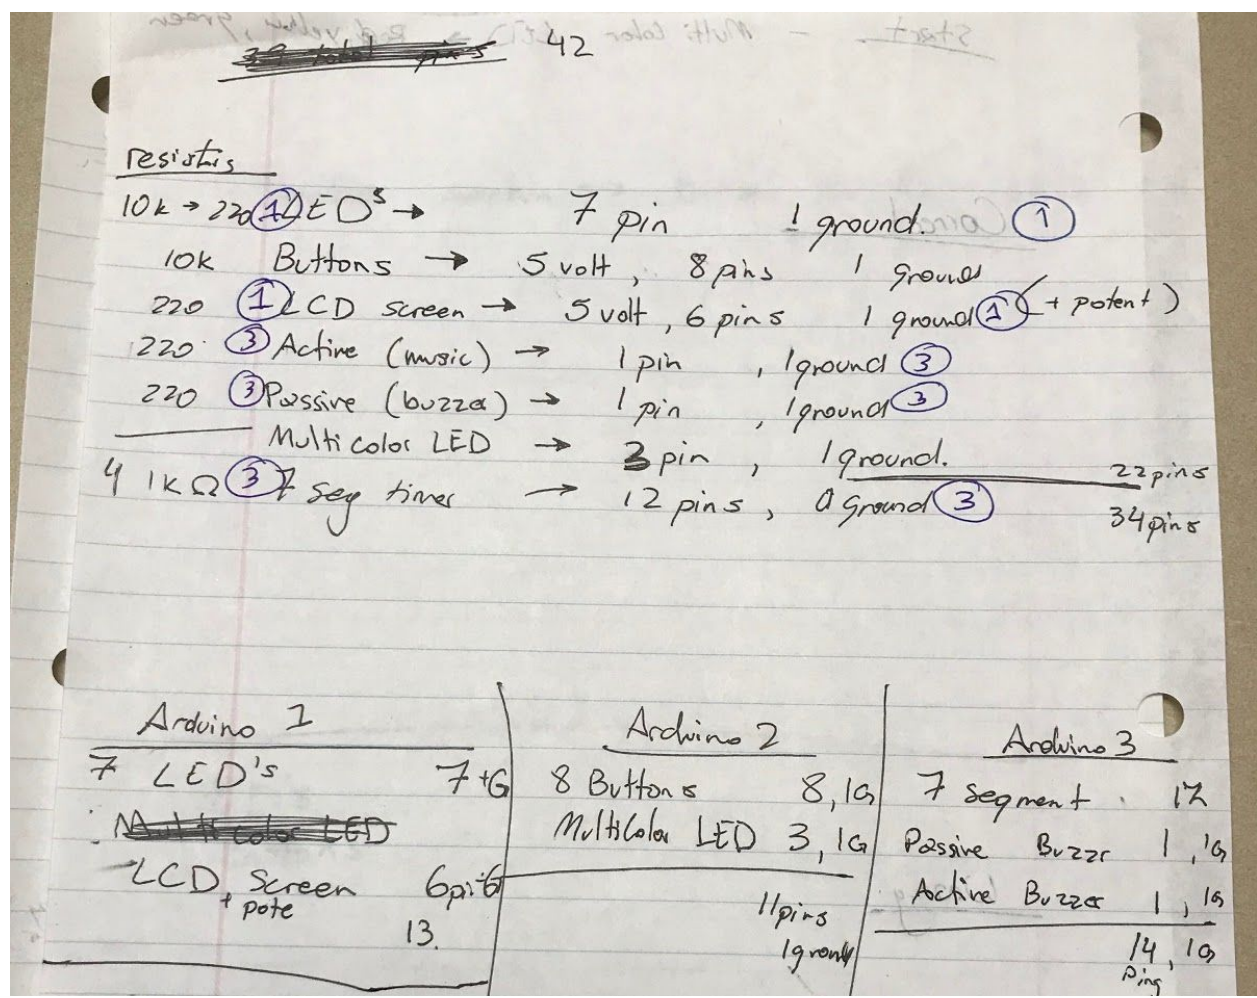 42
resistis
10k → 220 ① LED's → 7 pin 1 ground. ①
10k Buttons → 5 volt, 8 pins 1 ground
220 ① LCD screen → 5 volt, 6 pins 1 ground ① (+ potent)
220 ③ Active (music) → 1 pin, 1 ground ③
220 ③ Passive (buzzer) → 1 pin, 1 ground ③
Multicolor LED → 3 pin, 1 ground. 22 pins
4 1kΩ ③ 7 seg timer → 12 pins, 0 Ground ③ 34 pins
Arduino 1
7 LED's 7+G
LCD Screen 6pi+G
+ pote
13.
Arduino 2
8 Buttons 8, 1G
Multicolor LED 3, 1G
11 pins
1 ground
Arduino 3
7 segment. 12
Passive Buzzr 1, 1G
Active Buzzer 1, 1G
14, 1G
pins